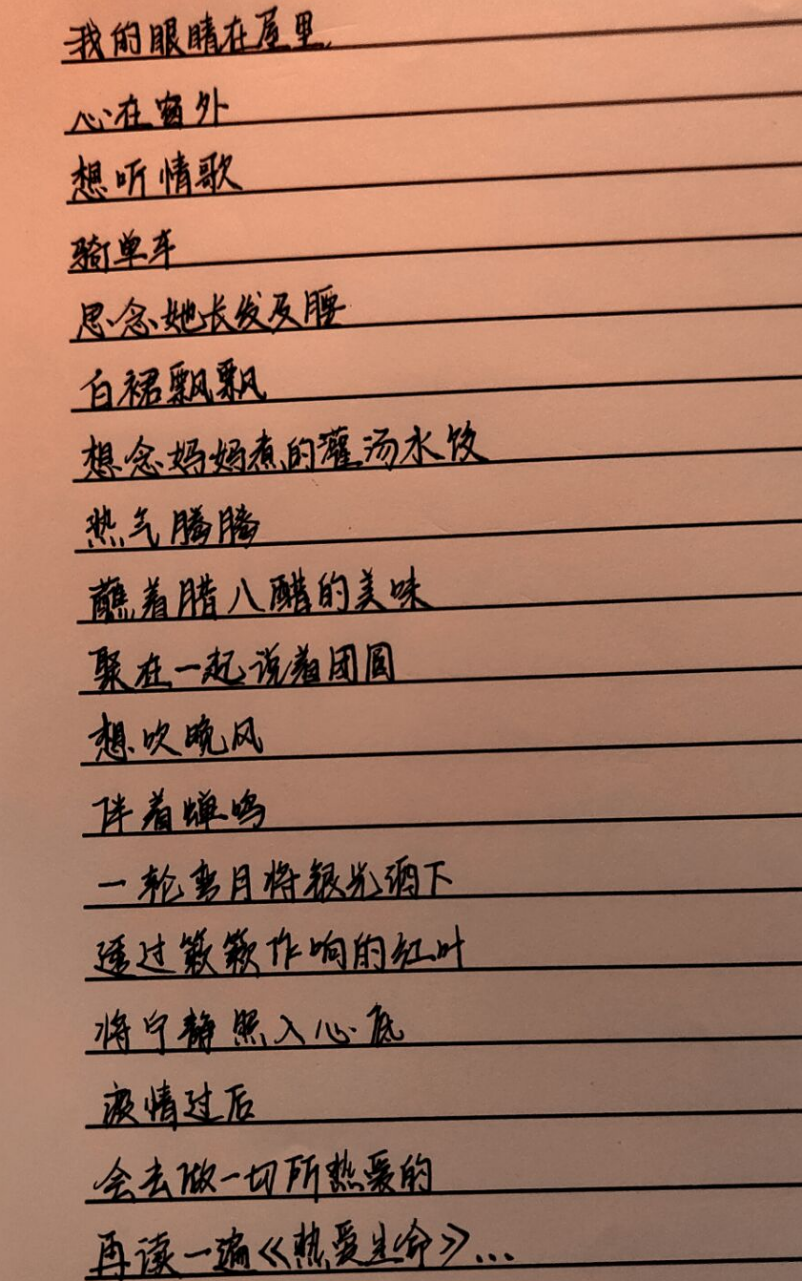 我的眼睛在屋里,
心在窗外
想听情歌
骑单车
思念她长发及腰
白裙飘飘
想念妈妈煮的灌汤水饺
热气腾腾
蘸着腊八醋的美味
聚在一起说着团圆
想吹晚风
伴着蝉鸣
一轮弯月将银光洒下
透过簌簌作响的红叶
将宁静照入心底
疫情过后
会去做一切所热爱的
再读一遍《热爱生命》...